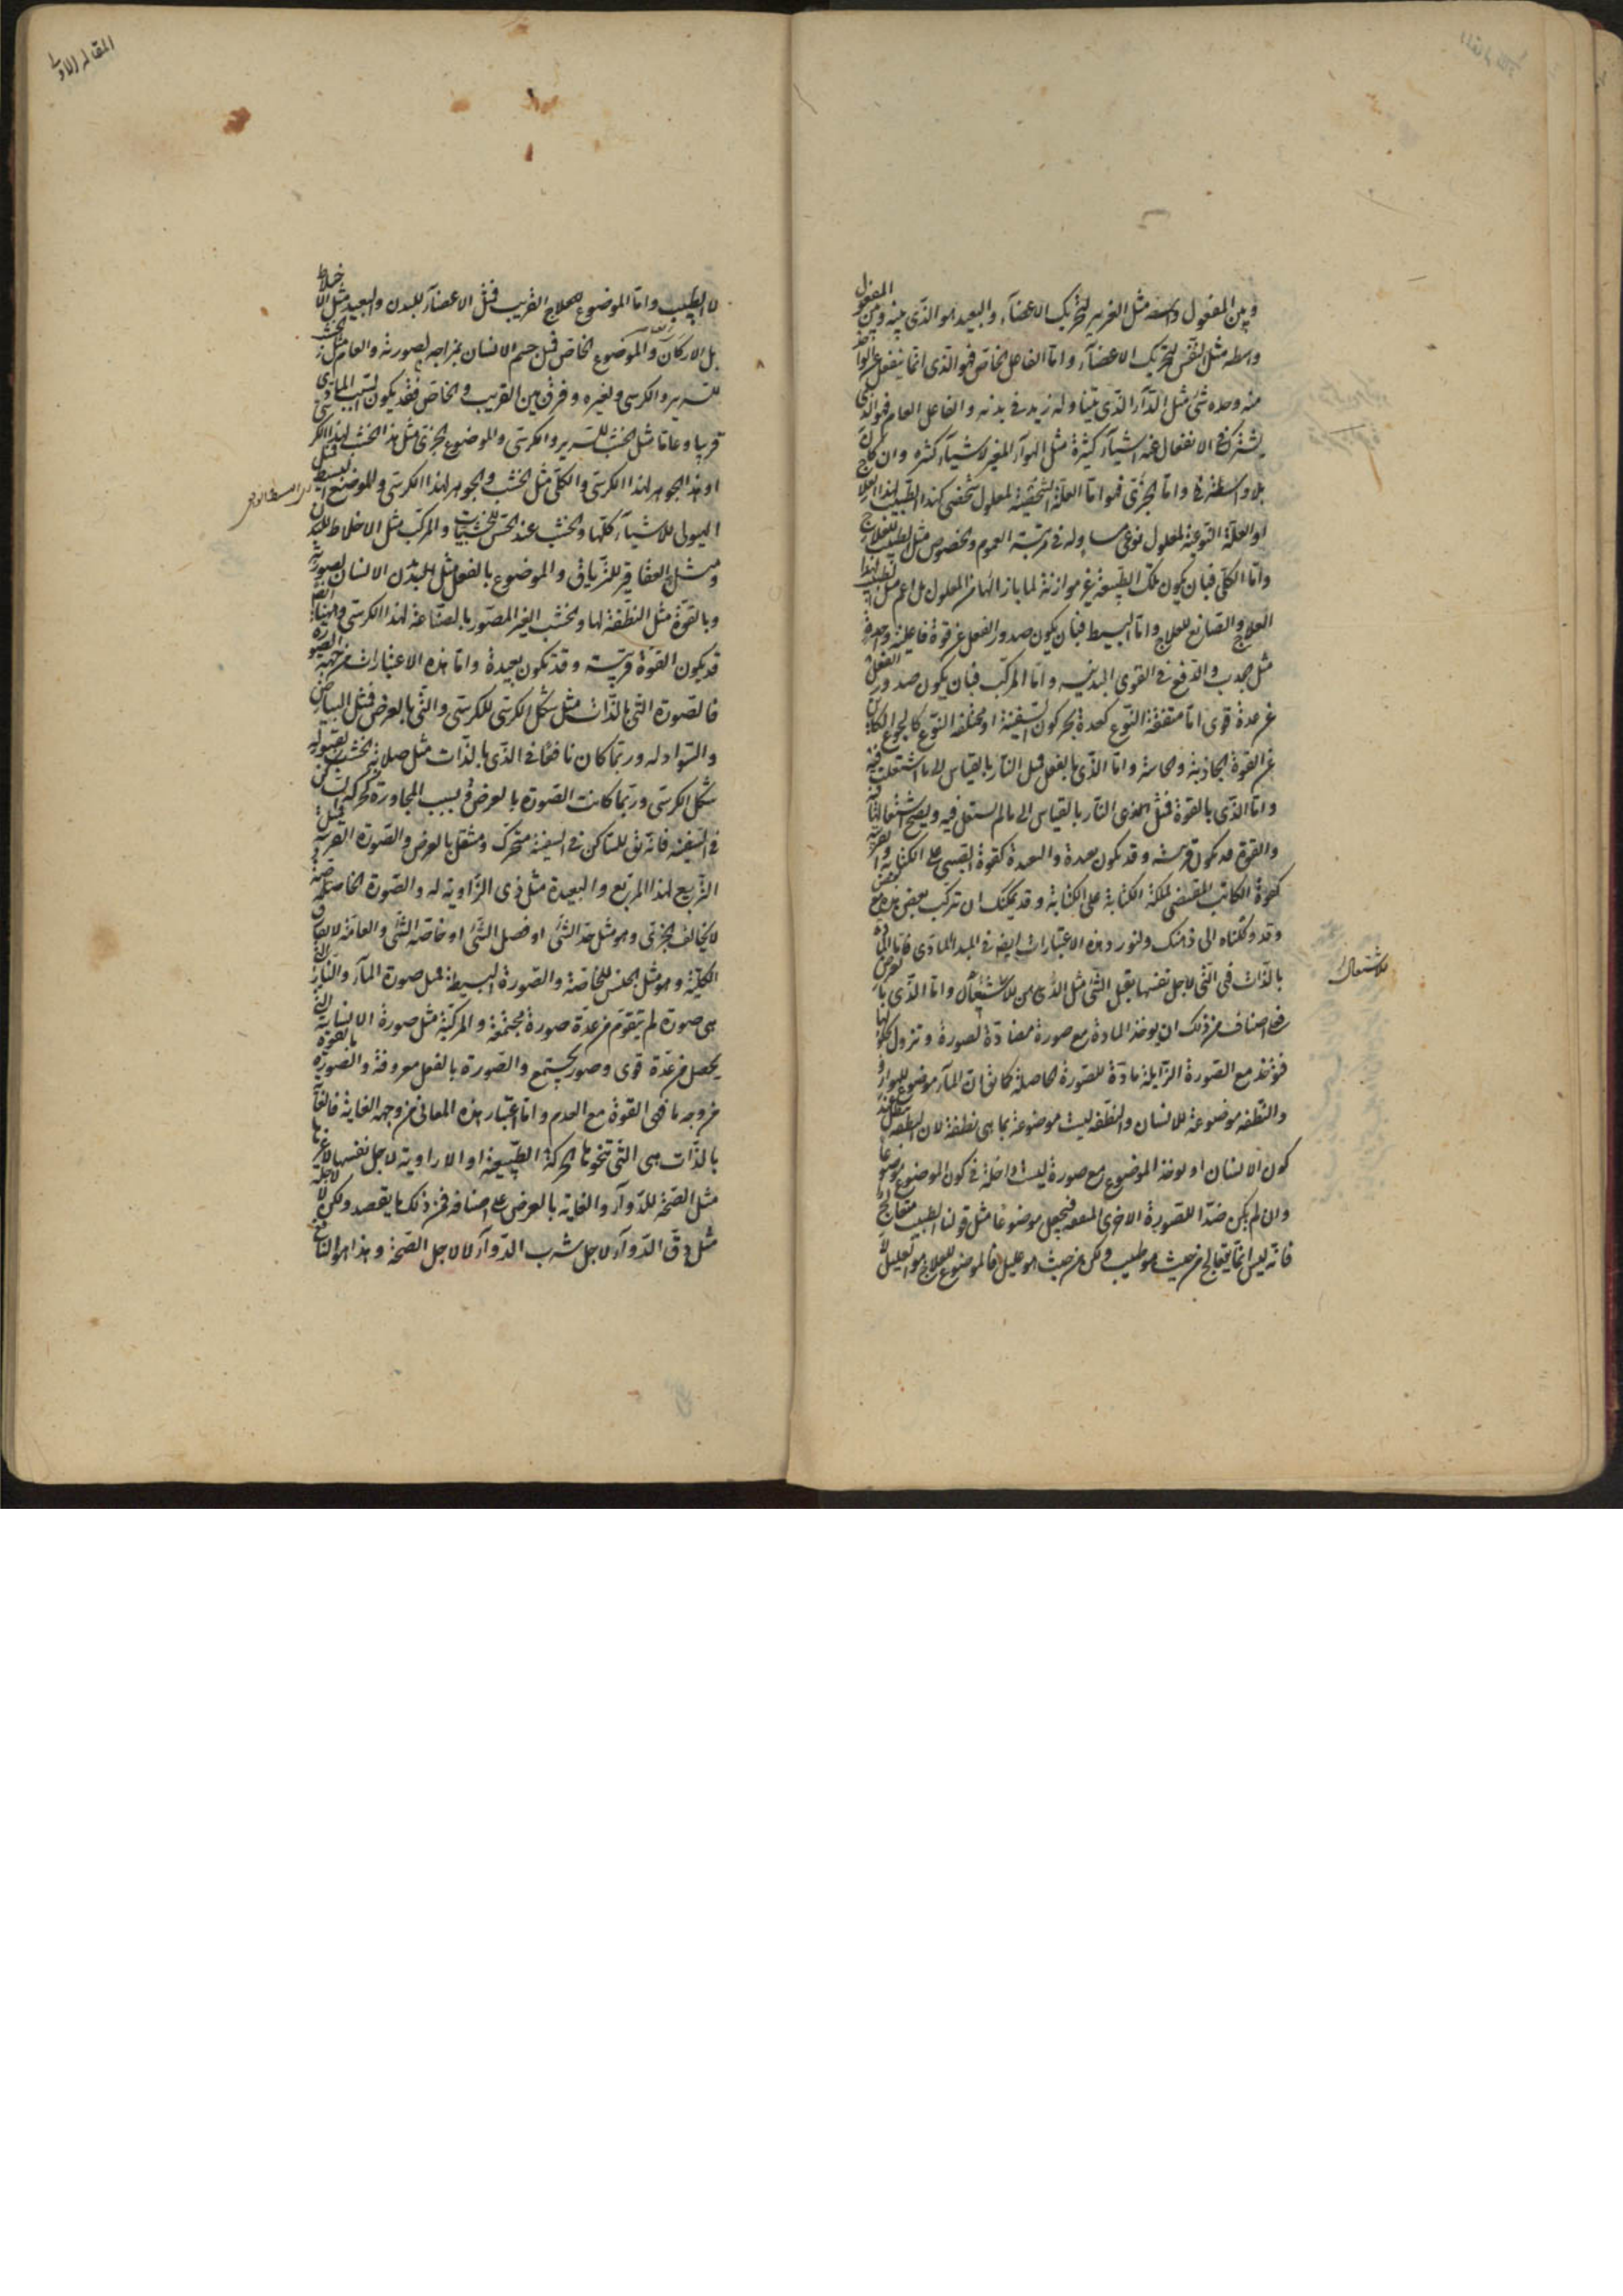 وبين المفعول واسطه مثل الوتر لتحريك الاعضآء والبعيد هو الذى بينه وبين المفعول
واسطه مثل النفس لتحريك الاعضآء واما الفاعل الخاص فهو الذى انما ينفعل عن الواحد
منه وحده شئ مثل الدوآء الذى يتناوله زيد فى بدنه والفاعل العام فهو الذى
يشترك فى الانفعال عنه اشيآء كثيرة مثل الهوآء المغير لاشيآء كثيره وان كان
بلا واسطه واما الجزئى فهو اما العلة الشخصية لمعلول شخصى كهذا الطبيب لهذا العلاج
او العلة النوعية لمعلول نوعى مساو له فى مرتبة العموم والخصوص مثل الطبيب للعلاج
واما الكلى فبان يكون تلك الطبيعة غير موازنة لما بازائها من المعلول بل اعم مثل الطبيب لهذا
العلاج والصانع للعلاج واما البسيط فبان يكون صدور الفعل عن قوة فاعلية واحدة
مثل الجذب والدفع فى القوى البدنيه واما المركب فبان يكون صدور الفعل
عن عدة قوى اما متفقة النوع كعدة يحركون السفينة او مختلفة النوع كالجوع الكاين
عن القوة الجاذبة والحاسة واما الذى بالفعل فمثل النار بالقياس الى ما اشتعلت فيه
واما الذى بالقوة فمثل النار بالقياس الى ما لم تشتعل فيه ويصح اشتعالها فيه
والقوة قد تكون قريبة وقد تكون بعيدة والبعيدة كقوة الصبى على الكتابة والقريبة
كقوة الكاتب المقتنى لملكة الكتابة على الكتابة وقد يمكنك ان تركب بعض هذه مع بعض
وقد وكلناه الى ذهنك ولنورد هذه الاعتبارات ايضا فى المبدا المادى فاما المادة
بالذات فهى التى لاجل نفسها يقبل الشئ مثل الدهن للاشتعال واما الذى بالعرض
فعلى اصناف من ذلك ان يوخذ المادة مع صورة مضادة لصورة وتزول بحلولها
فتوخذ مع الصورة الزايلة مادة للصورة الحاصلة كما يق ان المآء موضوع للهوآء
والنطفه موضوعة للانسان والنطفه ليست موضوعة بما هى نطفة لان النطفه تبطل عند
كون الانسان او يوخذ الموضوع مع صورة ليست داخلة فى كون الموضوع موضوعا
وان لم يكن ضدا للصورة الاخرى المقصودة فيجعل موضوعا مثل قولنا الطبيب يتعالج
فانه ليس انما يتعالج من حيث هو طبيب ولكن من حيث هو عليل فالموضوع للعلاج هو العليل لا
للاشتعال
المقاله الاولى
لا الطبيب واما الموضوع القريب فمثل الاعضآء للبدن والبعيد مثل الاخلاط
بل الاركان والموضوع الخاص فمثل جسم الانسان بمزاجه لصورته والعام مثل الخشب
للسرير والكرسى ولغيره وفرق بين القريب والخاص فقد يكون السبب المادى
قريبا وعاما مثل الخشب للسرير والكرسى والموضوع الجزئى مثل هذا الخشب لهذا الكرسى
او هذا الجوهر لهذا الكرسى والكلى مثل الخشب والجوهر لهذا الكرسى والموضوع البسيط فمثل
الهيولى للاشيآء كلها والخشب عند الحس للخشبيات والمركب مثل الاخلاط للبدن
ومثل العقاقير للترياق والموضوع بالفعل مثل بدن الانسان لصورته
وبالقوة مثل النطفة لها والخشب الغير المصور بالصناعة لهذا الكرسى وههنا ايضا
قد يكون القوة قريبة وقد تكون بعيدة واما هذه الاعتبارات من جهة الصورة
فالصورة التى بالذات مثل شكل الكرسى للكرسى والتى بالعرض فمثل البياض
والسواد له وربما كان نافعا فى الذى بالذات مثل صلابة الخشب لقبوله
شكل الكرسى وربما كانت الصورة بالعرض بسبب المجاورة كحركة الساكن
فى السفينه فانه يق للساكن فى السفينة متحرك ومنتقل بالعرض والصورة القريبه فمثل
التربيع لهذا المربع والبعيدة مثل ذى الزاوية له والصورة الخاصة
لا يخالف الجزئى وهو مثل حد الشئ او فصل الشئ او خاصة الشئ والعامة لا يفارق
الكلية وهو مثل الجنس للخاصة والصورة البسيطة فمثل صورة المآء والنار التى
هى صورة لم تتقوم من عدة صورة مجتمعة والمركبة مثل صورة الانسان التى
يحصل من عدة قوى وصور يجتمع والصورة بالفعل معروفة والصورة بالقوة
من وجه ما فهى القوة مع العدم واما اعتبار هذه المعانى من جهة الغاية فالغاية
بالذات هى التى تنحوها الحركة الطبيعية او الارادية لاجل نفسها لا غيرها
مثل الصحة للدوآء والغاية بالعرض على اصناف فمن ذلك ما يقصد ولكن لا لاجله
مثل دق الدوآء لاجل شرب الدوآء لا لاجل الصحة وهذا هو النافع